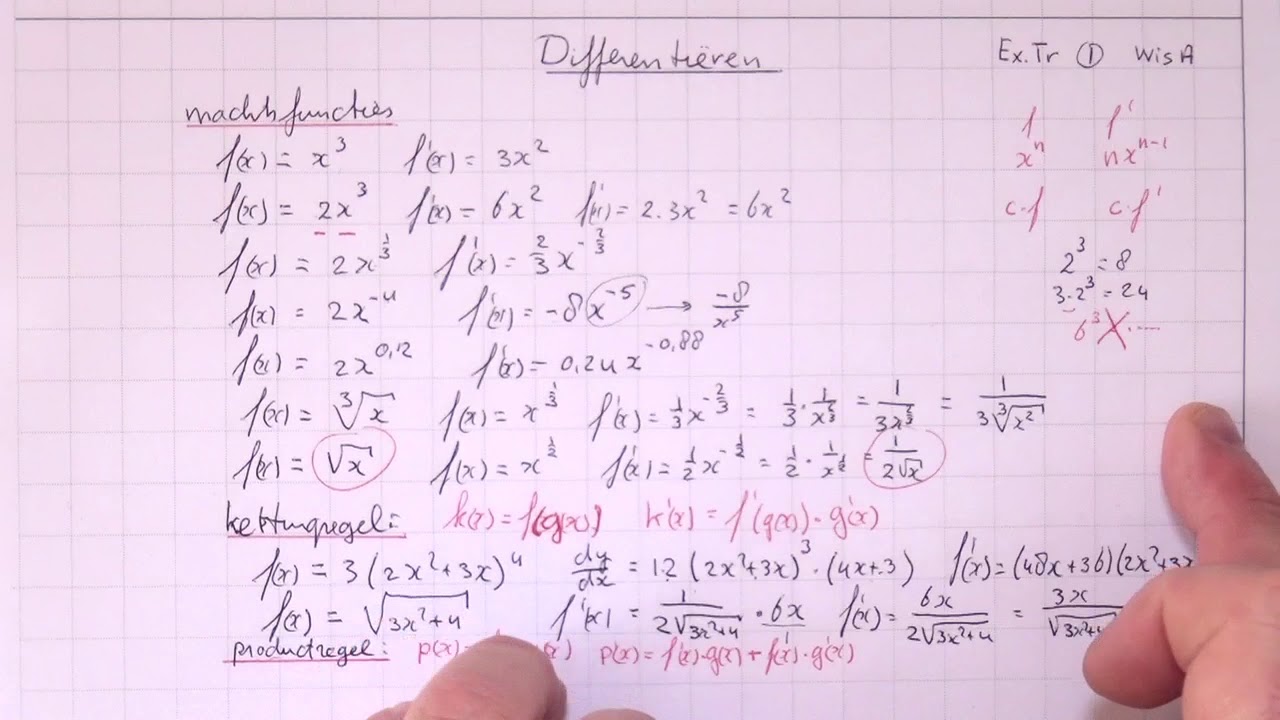 Differentiëren
Ex.Tr ① WisA
machtsfuncties
f(x) = x³ f'(x) = 3x²
f(x) = 2x³ f'(x) = 6x² f'(x) = 2.3x² = 6x²
f(x) = 2x^(1/3) f'(x) = 2/3 x^(-2/3)
f(x) = 2x^(-4) f'(x) = -8x^(-5) → -8/x⁵
f(x) = 2x^(0,12) f'(x) = 0,24x^(-0,88)
f(x) = ∛x f(x) = x^(1/3) f'(x) = 1/3 x^(-2/3) = 1/3 · 1/x^(2/3) = 1/(3x^(2/3)) = 1/(3∛(x²))
f(x) = √x f(x) = x^(1/2) f'(x) = 1/2 x^(-1/2) = 1/2 · 1/x^(1/2) = 1/(2√x)
f f'
xⁿ nx^(n-1)
c·f c·f'
2³ = 8
3·2³ = 24
6³
kettingregel: k(x) = f(g(x)) k'(x) = f'(g(x)) · g'(x)
f(x) = 3(2x²+3x)⁴ dy/dx = 12(2x²+3x)³ · (4x+3) f'(x) = (48x+36)(2x²+3x
f(x) = √(3x²+4) f'(x) = 1/(2√(3x²+4)) · 6x f'(x) = 6x/(2√(3x²+4)) = 3x/√(3x²+4)
productregel: p(x) = p'(x) = f'(x)·g(x) + f(x)·g'(x)